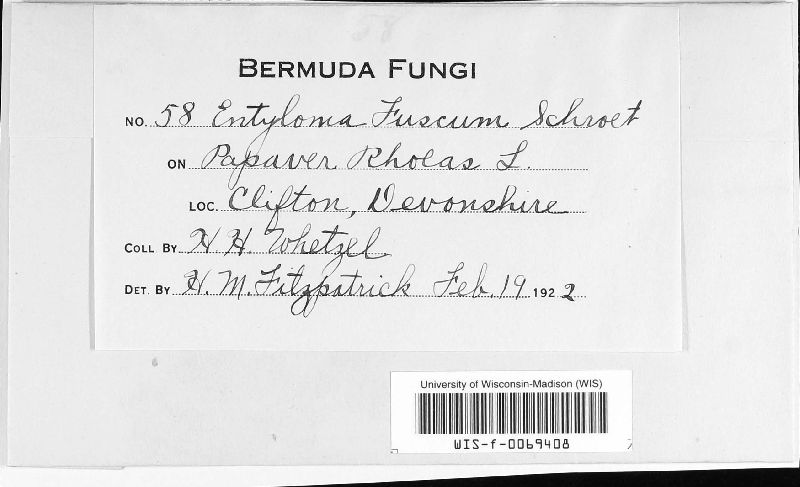 58
BERMUDA FUNGI
NO. 58 Entyloma Fuscum Schroet
ON Papaver Rhoeas L.
LOC. Clifton, Devonshire
COLL. BY H H. Whetzel
DET. BY H. M. Fitzpatrick Feb. 19 1922
University of Wisconsin-Madison (WIS)
WIS-f-0069408